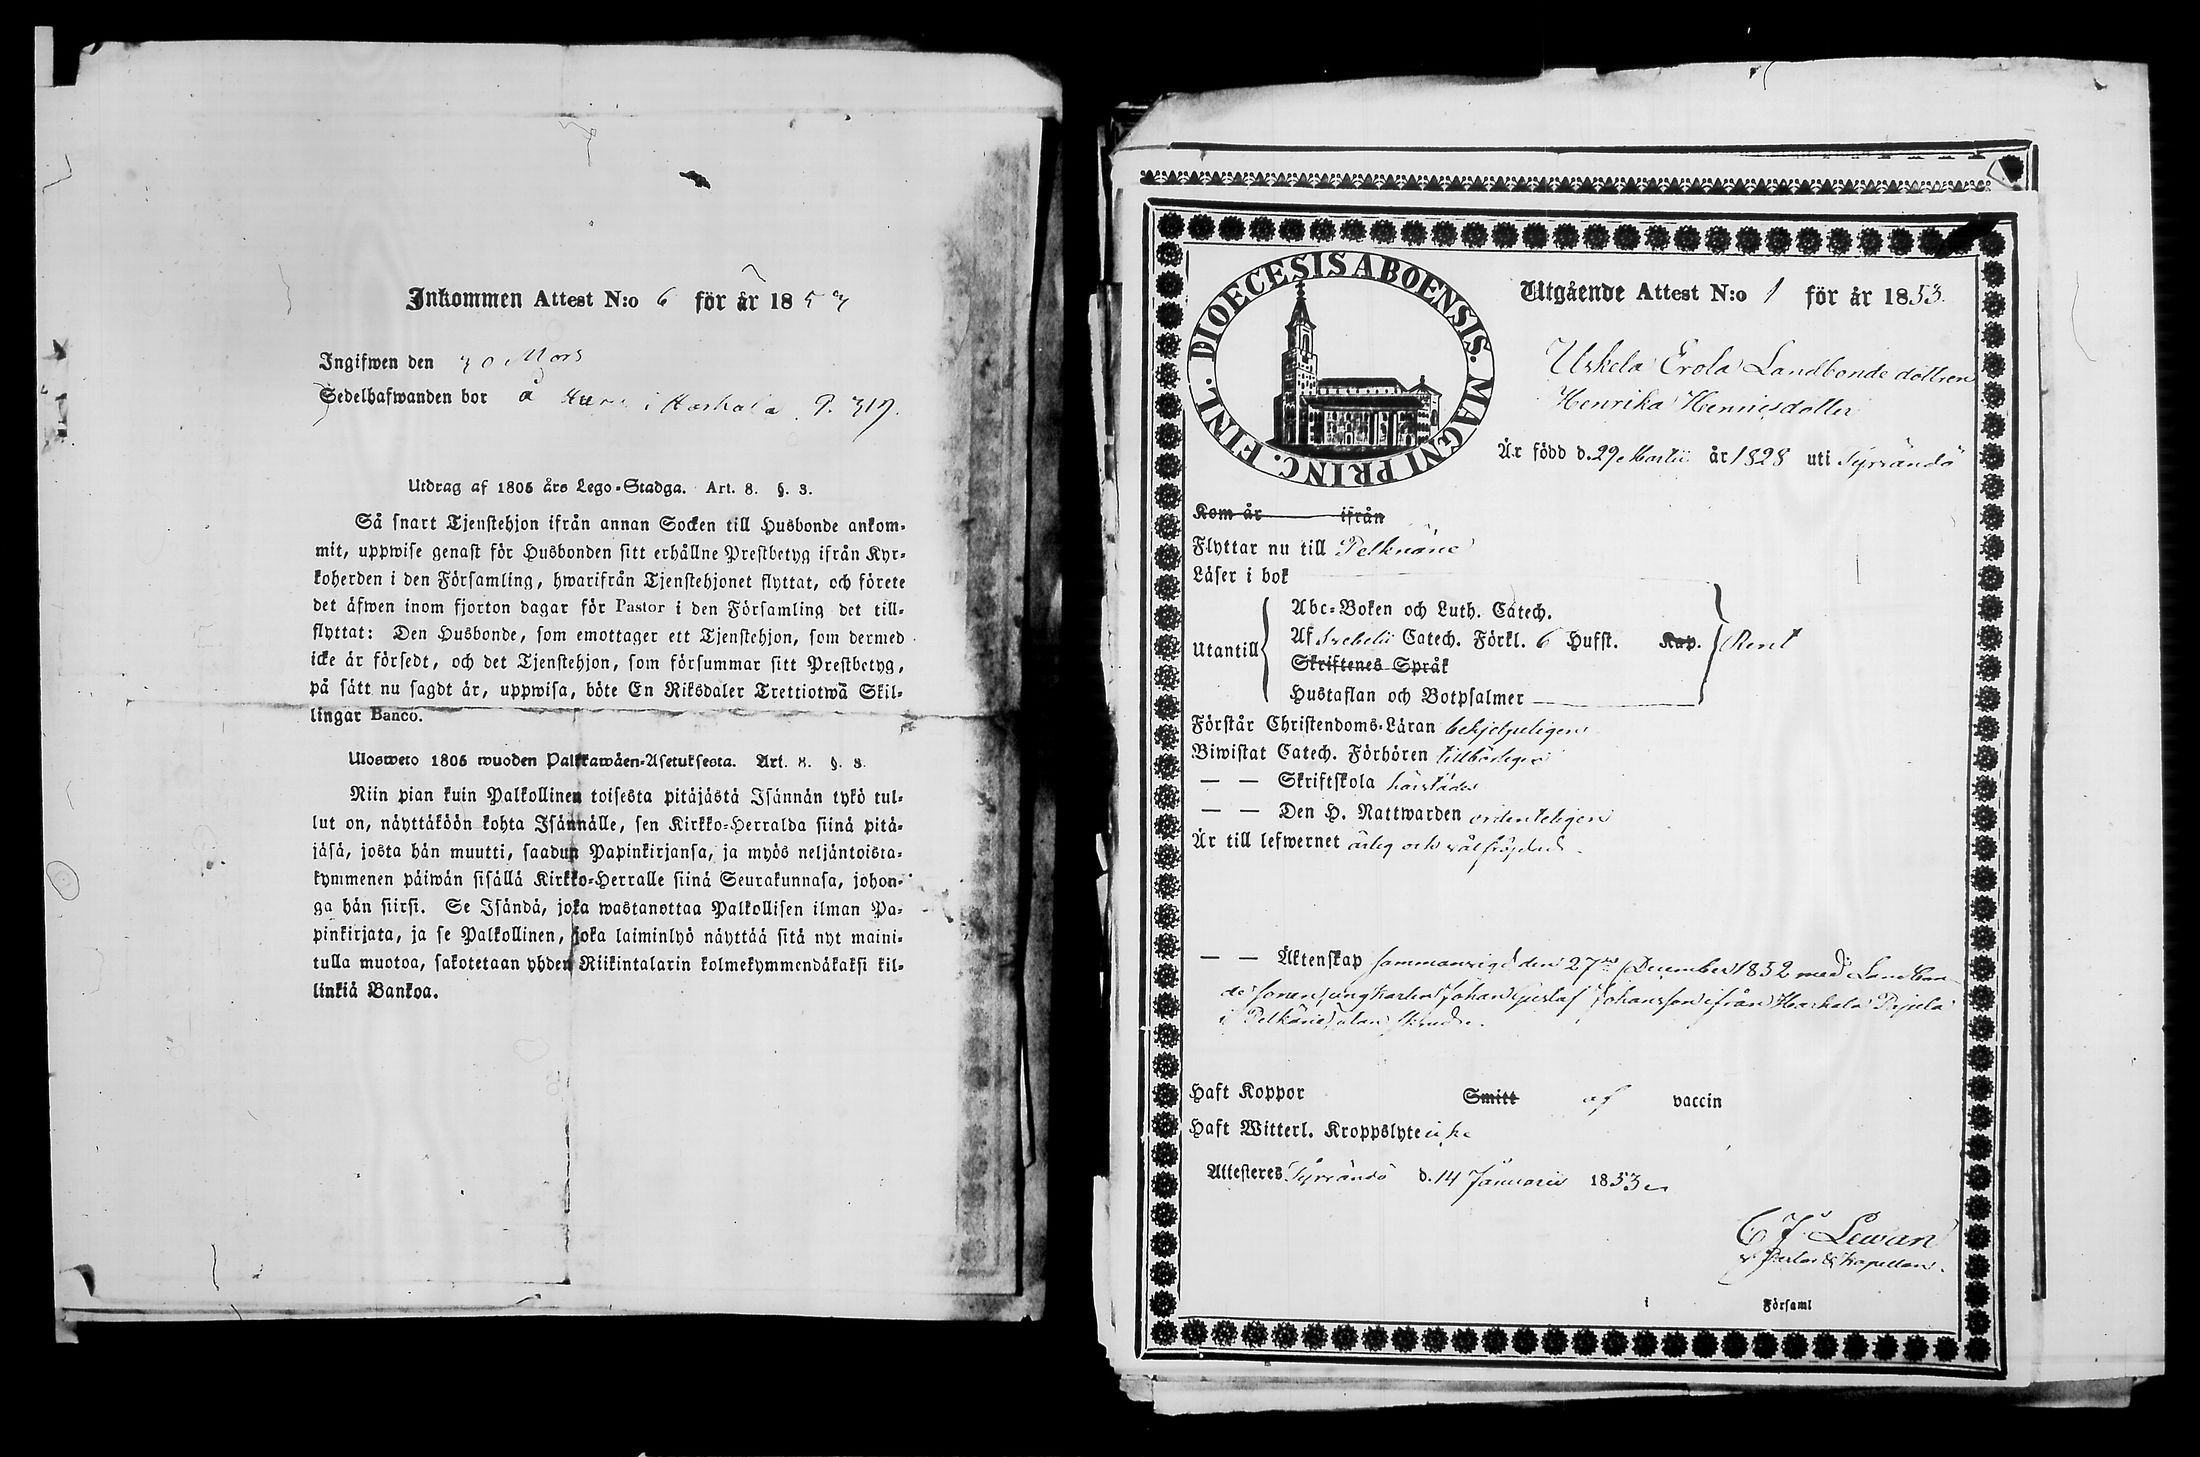 Inkommen Attest N:o 6 för år 1853
Ingifwen den 30 Mars
Sedelhafwanden bor å i Harhala P. 317.
Utdrag af 1805 års Lego-Stadga. Art. 8. §. 3.
Så snart Tjenstehjon ifrån annan Socken till Husbonde ankom-
mit, uppwise genast för Husbonden sitt erhållne Prestbetyg ifrån Kyr-
koherden i den Församling, hwarifrån Tjenstehjonet flyttat, och förete
det äfwen inom fjorton dagar för Pastor i den Församling det till-
flyttat: Den Husbonde, som emottager ett Tjenstehjon, som dermed
icke är försedt, och det Tjenstehjon, som försummar sitt Prestbetyg,
på sätt nu sagdt är, uppwisa, böte En Riksdaler Trettiotwå Skil-
lingar Banco.
Ulosweto 1805 wuoden Palkkawäen-Asetuksesta. Art. 8. §. 3.
Niin pian kuin Palkollinen toisesta pitäjästä Isännän tykö tul-
lut on, näyttäköön kohta Isännälle, sen Kirkko-Herralda siinä pitä-
jäsä, josta hän muutti, saadun Papinkirjansa, ja myös neljäntoista-
kymmenen päiwän sisällä Kirkko-Herralle siinä Seurakunnasa, johon-
ga hän siirsi. Se Isändä, joka wastanottaa Palkollisen ilman Pa-
pinkirjata, ja se Palkollinen, joka laiminlyö näyttää sitä nyt maini-
tulla muotoa, sakotetaan yhden Riikintalarin kolmekymmendäkaksi kil-
linkiä Bankoa.
DIOECESIS ABOENSIS. MAGNI PRINC. FINL.
Utgående Attest N:o 1 för år 1853.
Uskela Erola Landbonde dottren
Henrika Henricsdotter
Är född d. 29 Martii år 1828 uti Tyrvändö
Kom år ifrån
Flyttar nu till Pelknäne
Läser i bok
Abc-Boken och Luth. Catech.
Utantill Af Svebelii Catech. Förkl. 6 Hufst. Kap. Rent
Skriftenes Språk
Hustaflan och Botpsalmer
Förstår Christendoms-Läran behjelpeligen
Biwistat Catech. Förhören tillbörligen
— — Skriftskola härstädes
— — Den H. Nattwarden ordenteligen
Är till lefwernet ärlig och välfrejdad
— — Äktenskap sammanvigd den 27de December 1852 med Landbon-
de sonen ungkarlen Johan Gustaf Johansson ifrån Harhala Pajula
i Pelkäne utan
Haft Koppor Smitt af vaccin
Haft Witterl. Kroppslyte icke
Attesteres Tyrvändö d. 14 Januarii 1853
C J Lewan
v Pastor & Kapellan.
i Församl